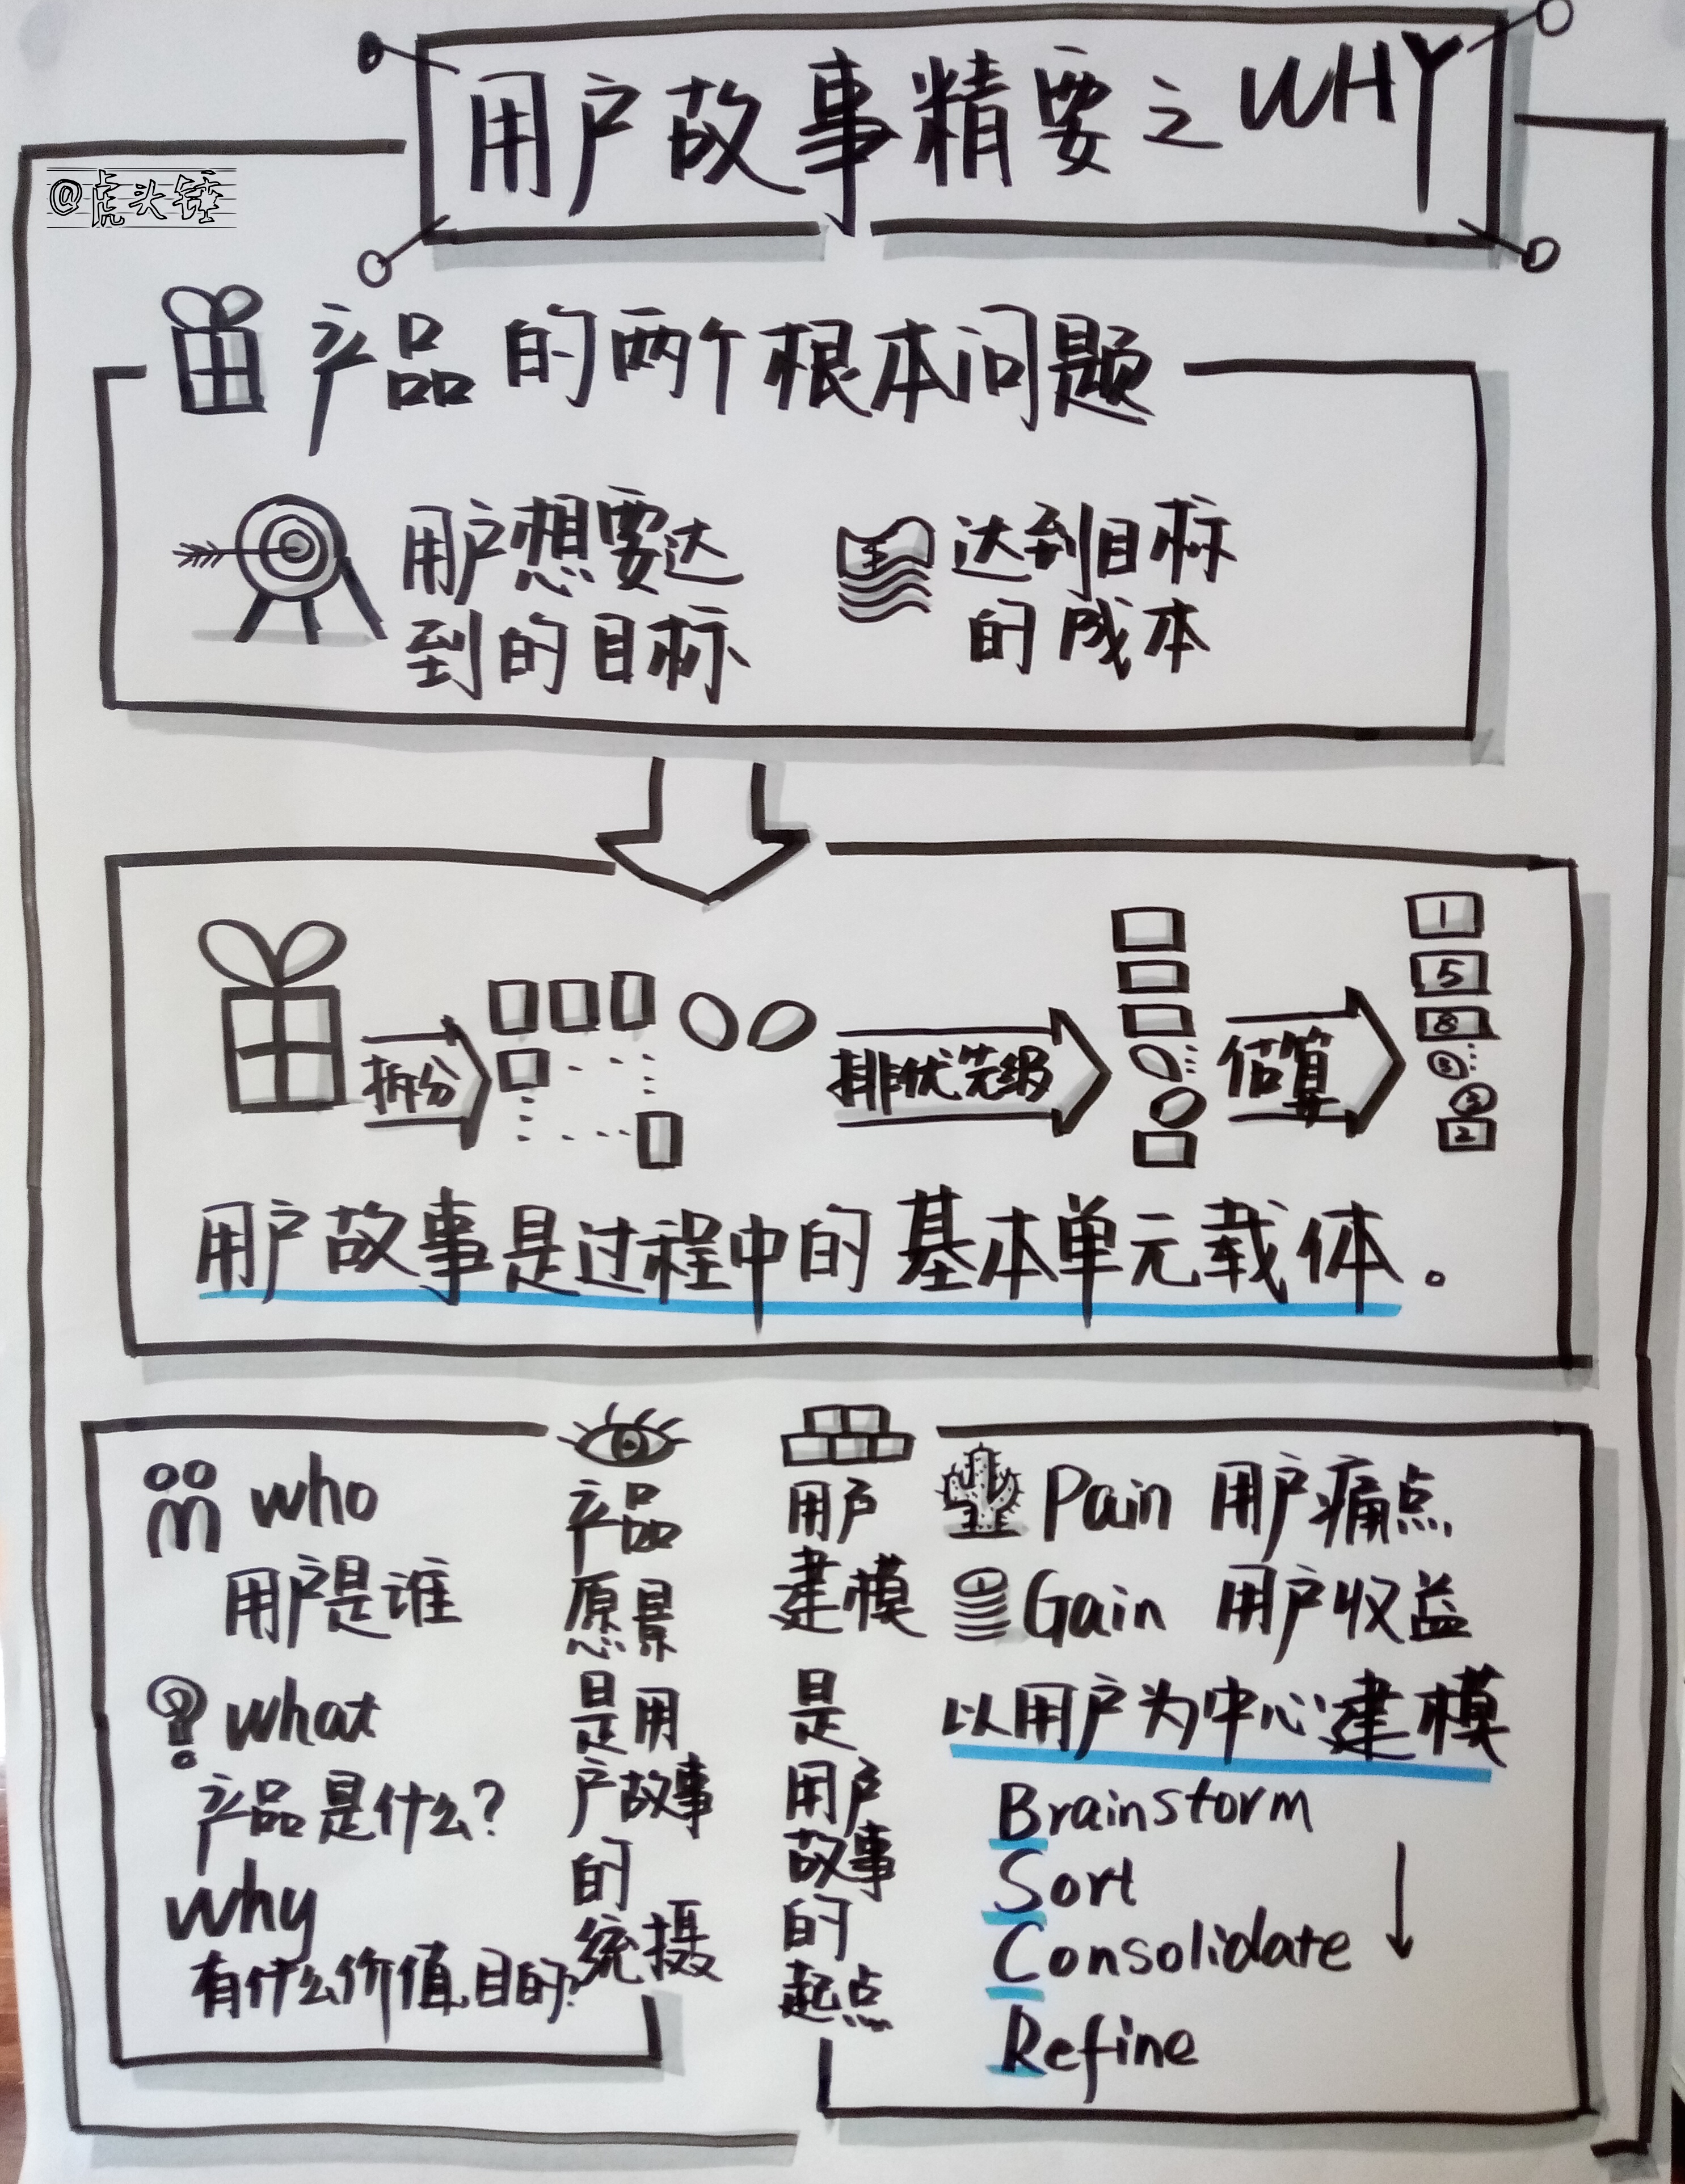 用户故事精要之WHY
@虎头锤
产品的两个根本问题
用户想要达
到的目标
达到目标
的成本
拆分
排优先级
估算
1
5
8
3
2
2
用户故事是过程中的基本单元载体。
who
用户是谁
what
产品是什么?
why
有什么价值、目的?
产品
愿景
是用
户故事
的
统摄
用户
建模
是
用户
故事
的
起点
Pain 用户痛点
Gain 用户收益
以用户为中心建模
Brainstorm
Sort
Consolidate
Refine